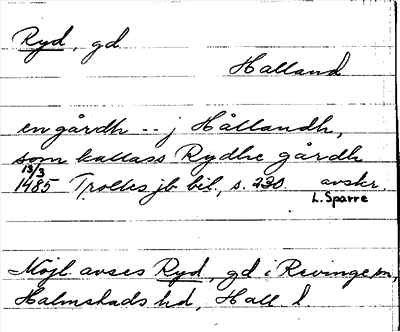 Ryd, gd
Halland
en gårdh -- j Hållandh,
som kallass Rydhe gårdh
13/3
1485 Trolles jb bil., s. 230. avskr.
L. Sparre
Möjl. avses Ryd, gd i Revinge sn,
Halmstads hd, Hall. l.